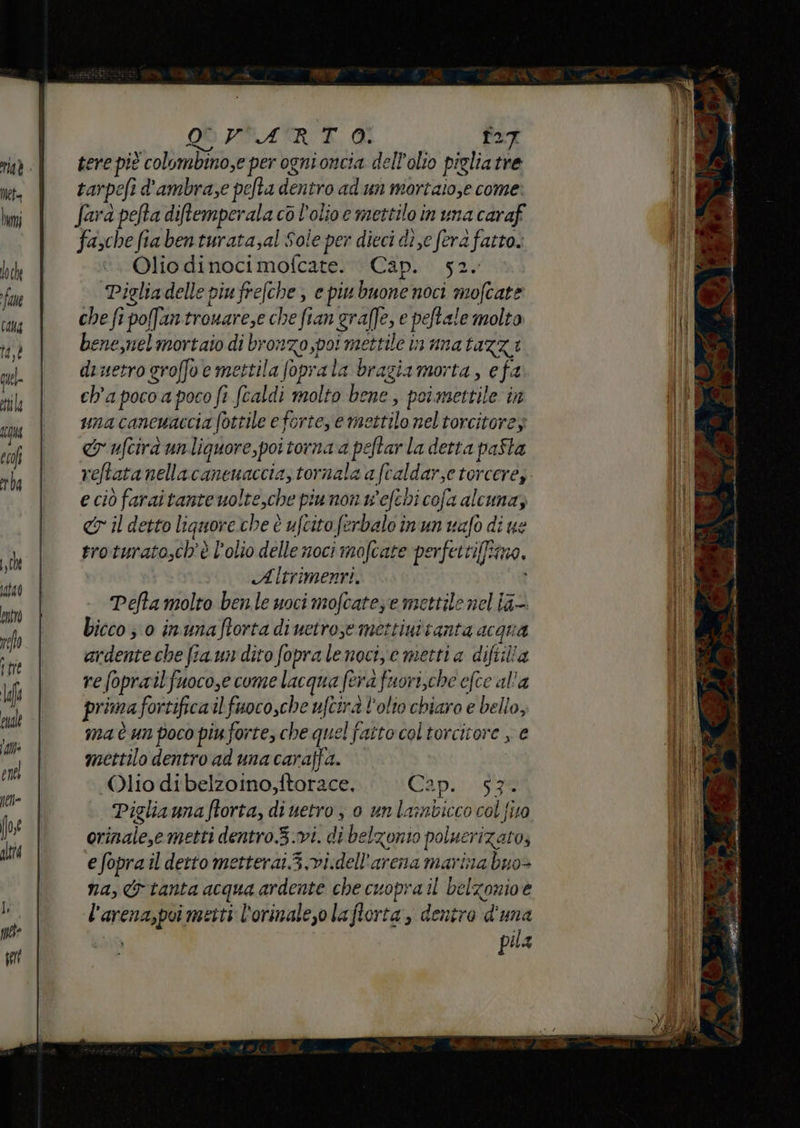 QVARTO. 127
tere piè colombino,e per ogni oncia dell'olio piglia tre
tarpesi d'ambra,e pesta dentro ad un mortaio,e come
sarà pesta distemperala cõ l'olio e mettilo in una caraf
fa,che sia ben turata,al Sole per dieci dì,e serà fatto.
Olio di noci moscate. Cap. 52.
Piglia delle piu fresche, e piu buone noci moscate
che si possan trouare,e che sian grasse, e pestale molto
bene,nel mortaio di bronzo,poi mettile in una tazza
di uetro grosso e mettila sopra la bragia morta, e fa
ch'a poco a poco si scaldi molto bene, poi mettile in
una caneuaccia sottile e forte, e mettilo nel torcitore,
& uscirà un liquore,poi torna a pestar la detta pasta
restata nella caneuaccia, tornala a scaldar,e torcere,
e ciò farai tante uolte,che piu non n'eschi cosa alcuna,
& il detto liquore che è uscito serbalo in un uaso di ue
tro turato,ch'è l'olio delle noci moscate perfettissimo.
Altrimenti.
Pesta molto ben le noci moscate,e mettile nel lã-
bicco, o in una storta di uetro,e mettiui tanta acqua
ardente che sia un dito sopra le noci,e metti a distilla
re sopra il fuoco,e come lacqua serà fuori,che esce alla
prima fortifica il fuoco,che uscirà l'olio chiaro e bello,
ma è un poco piu forte, che quel fatto col torcitore, e
mettilo dentro ad una caraffa.
Olio di belzoino,storace. Cap. 53.
Piglia una storta, di uetro, o un lambicco col suo
orinale,e metti dentro.℥.vi. di belzonio poluerizato,
e sopra il detto metterai.℥.vi.dell'arena marina buo-
na, & tanta acqua ardente che cuopra il belzonio e
l'arena,poi metti l'orinale,o la storta, dentro d'una
pila